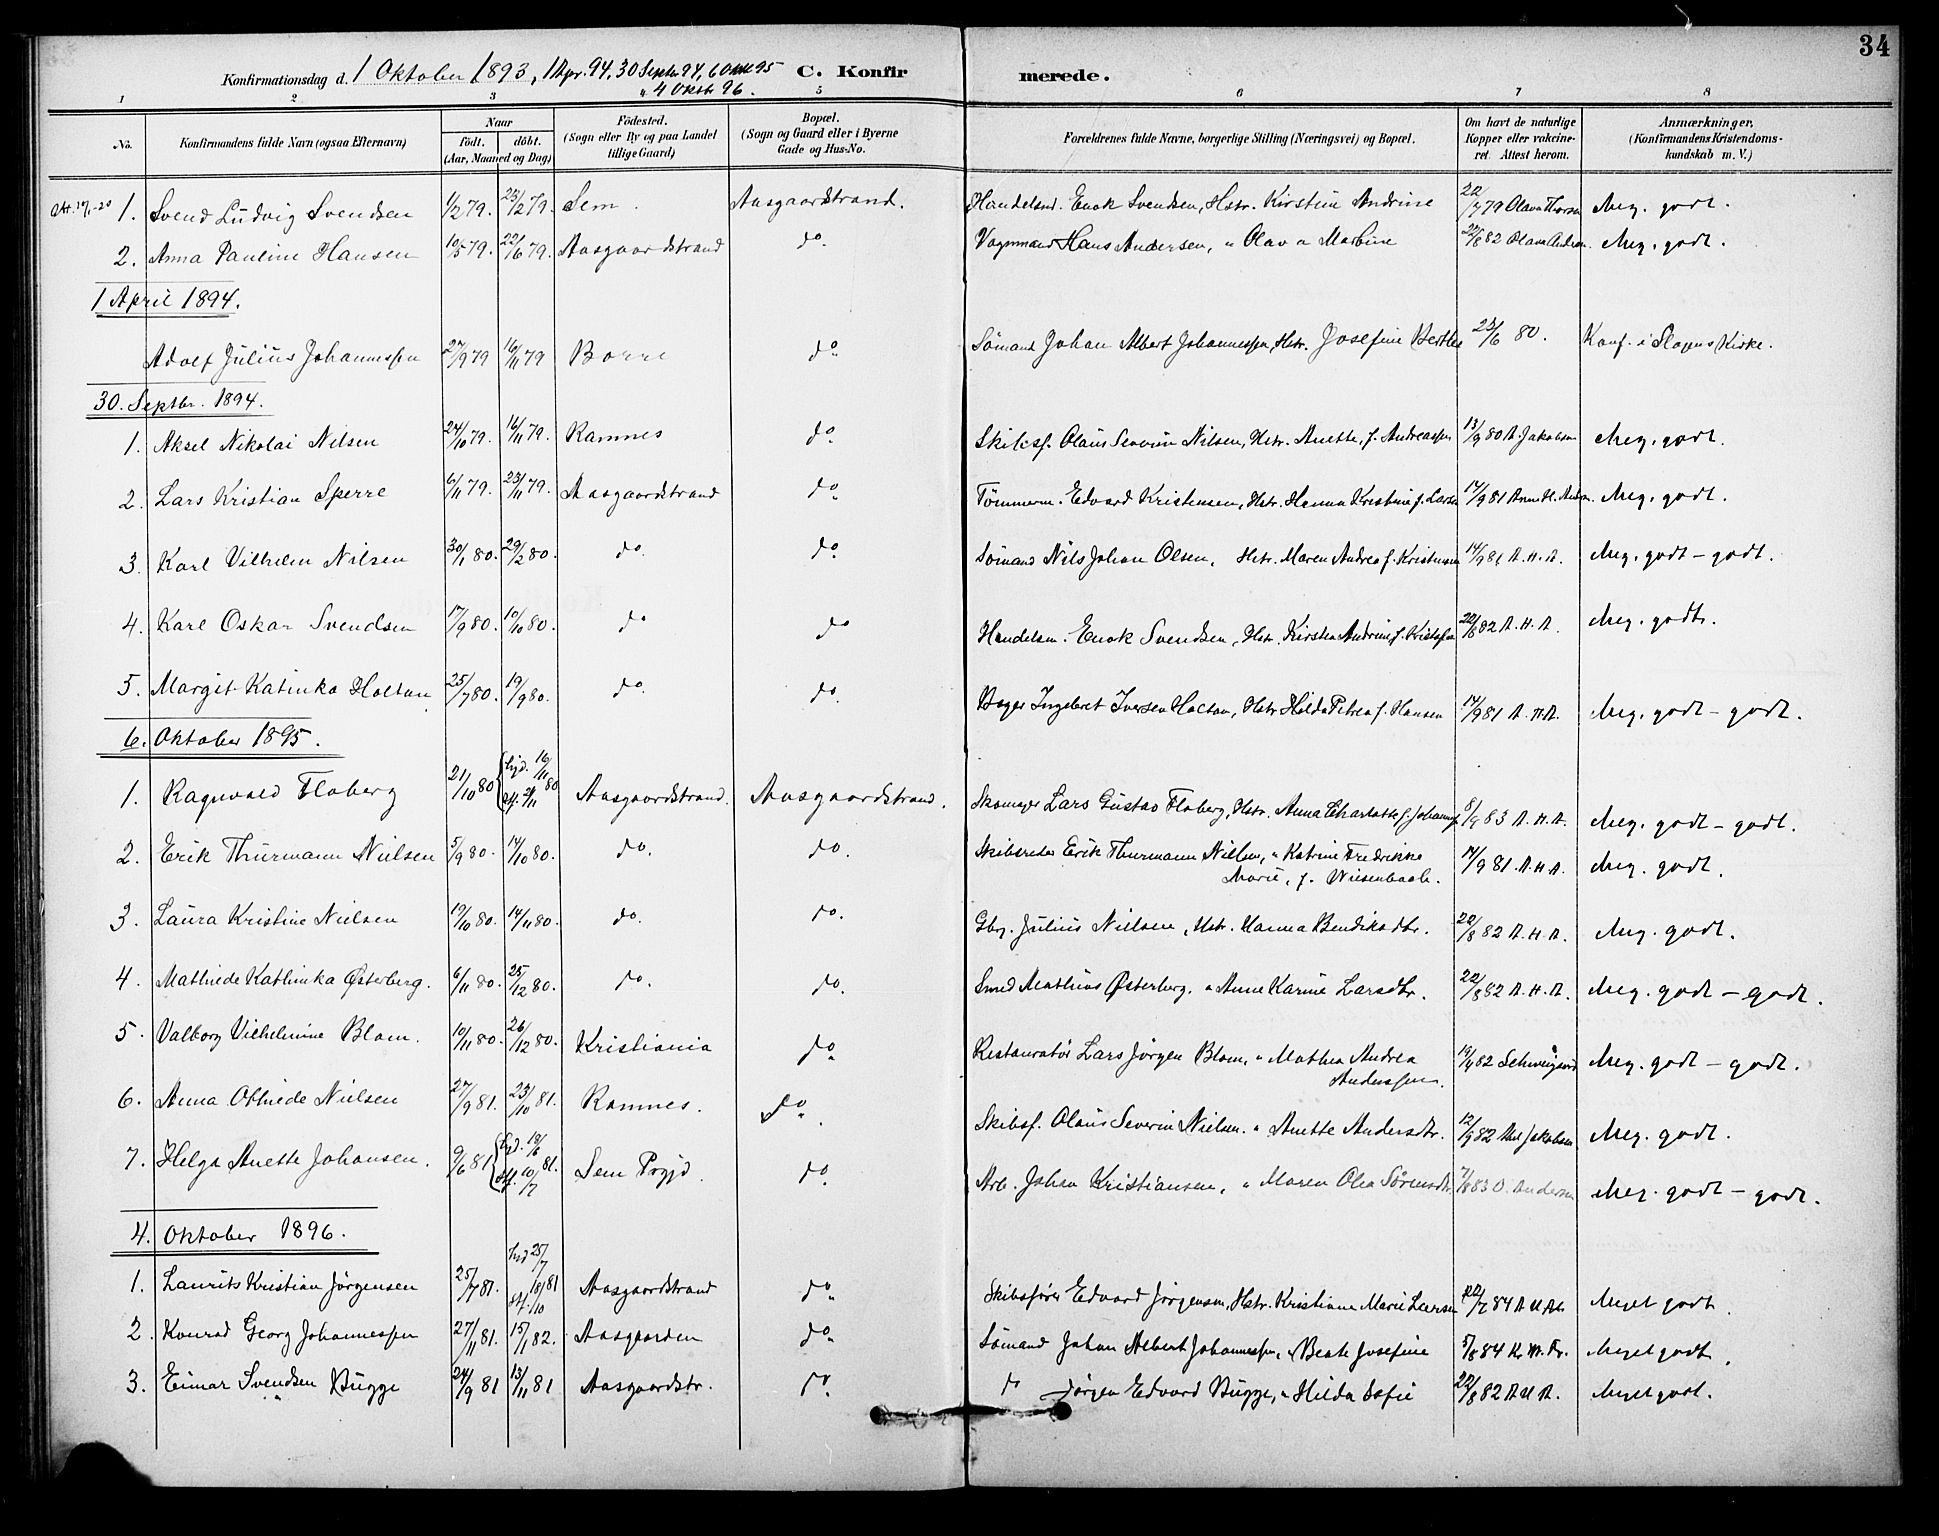 34
Konfirmationsdag d. 1 Oktober 1893, 1 Apr. 94, 30 Septbr 94, 6 Okt 95 C. Konfirmerede.
" 4 Oktb 96.
1 2 3 4 5 6 7 8
No. Konfirmandens fulde Navn (ogsaa Efternavn) Naar födt. döbt. (Aar, Maaned og Dag) Födested. (Sogn eller By og paa Landet tillige Gaard) Bopæl. (Sogn og Gaard eller i Byerne Gade og Hus-No. Forældrenes fulde Navne, borgerlige Stilling (Næringsvei) og Bopæl. Om havt de naturlige Kopper eller vakcineret Attest herom. Anmærkninger, (Konfirmandens Kristendomskundskab m. V.)
1. Svend Ludvig Svendsen 1/2 79. 23/2 79. Sem. Aasgaardstrand. Handelsmd. Enok Svendsen, Hstr. Kirstine Andrine 22/7 79 Olava Thorsen Meg. godt.
2. Anna Pauline Hansen 10/5 79. 22/6 79. Aasgaardstrand do. Vognmand Hans Andersen, " Olava Mathine 22/8 82 Olava Anders. Meg. godt.
1 April 1894.
Adolf Julius Johannessen 27/9 79 16/11 79 Borre do Sømand Johan Albert Johannessen, Hstr. Josefine Berthes 23/6 80. Konf. i Slagens Kirke.
30. Septbr. 1894.
1. Aksel Nikolai Nilsen 24/10 79. 16/11 79. Ramnes do Skibsf. Olaus Severin Nilsen, Hstr. Anette, f. Andreassen 13/9 80 A. Jakobsen Meg. godt.
2. Lars Kristian Sperre 6/11 79. 23/11 79. Aasgaardstrand do Tømmerm. Edvard Kristensen, Hstr. Hanna Kristine f. Larsen 14/9 81 Anne H. Anders. Meg. godt.
3. Karl Vilhelm Nilsen 30/1 80. 29/2 80. do. do Sømand Nils Johan Olsen, Hstr. Maren Andrea f. Kristensen 14/9 81 A. H. A. Meg. godt – godt.
4. Karl Oskar Svendsen 17/9 80. 10/10 80. do do Handelsm. Enok Svendsen, Hstr. Kirstine Andrine, f. Kristofsen 22/8 82 A. H. A. Meg. godt.
5. Margit Katinka Holtan 25/7 80. 19/9 80. do. do. Bager Ingebret Iversen Holtan, Hstr Hilda Petrea f. Hansen 14/9 81 A. H. A. Meg. godt – godt.
6. Oktober 1895.
1. Ragnvald Floberg 21/10 80 hjd. 16/11 80 Aasgaardstrand. Aasgaardstrand. Skomager Lars Gustav Floberg, Hstr. Anna Charlotte f. Johannes. 8/9 83 A. H. A. Meg. godt – godt.
2. Erik Thurmann Nielsen 5/9 80. 14/10 80. do. do. Skibsreder Erik Thurmann Nielsen, " Katrine Fredrikke Marie, f. Wiesenbach. 14/9 81. A. H. A. Meg. godt.
3. Laura Kristine Nielsen 19/10 80. 14/11 80. do. do. Gbr. Julius Nielsen, Hstr. Hanna Bendiksdtr. 22/8 82 A. H. A. Meg. godt.
4. Mathilde Kathinka Østerberg. 6/11 80. 25/12 80. do. do. Smed Mathius Østerberg, " Anne Karine Larsdtr. 22/8 82 A. H. A. Meg. godt – godt.
5. Valborg Vilhelmine Blom. 10/11 80. 26/12 80. Kristiania do Restauratør Lars Jørgen Blom, " Mathea Andrea Anderssen. 19/4 82 Schweigaard Meg. godt – godt.
6. Anna Othilde Nielsen 27/9 81. 23/10 81. Ramnes. do. Skibsf. Olaus Severin Nielsen. " Anette Andersdtr. 12/9 82 And Jakobsen Meg. godt.
7. Helga Anette Johansen. 9/6 81 hjd. 19/6 stf. 10/7 81. Sem Prgjd. do. Arb. Johan Kristiansen, " Maren Olea Sørensdtr. 7/8 83 O. Andersen Meg. godt – godt.
4. Oktober 1896.
1. Laurits Kristian Jørgensen 25/7 81. hjd 25/7 stf. 18/10 81 Aasgaardstrand do. Skibsfører Edvard Jørgensen, Hstr. Kristiane Marie Larsen 22/7 84 Meget godt.
2. Konrad Georg Johannessen 27/11 81. 15/1 82. Aasgaarden do. Sømand Johan Albert Johannessen, " Beate Josefine 5/8 84 Meget godt.
3. Einar Svendsen Bugge 24/9 81 13/11 81 Aasgaardstr. do. do Jørgen Edvard Bugge, " Hilda Sofie 22/8 82 A H A. Meget godt.